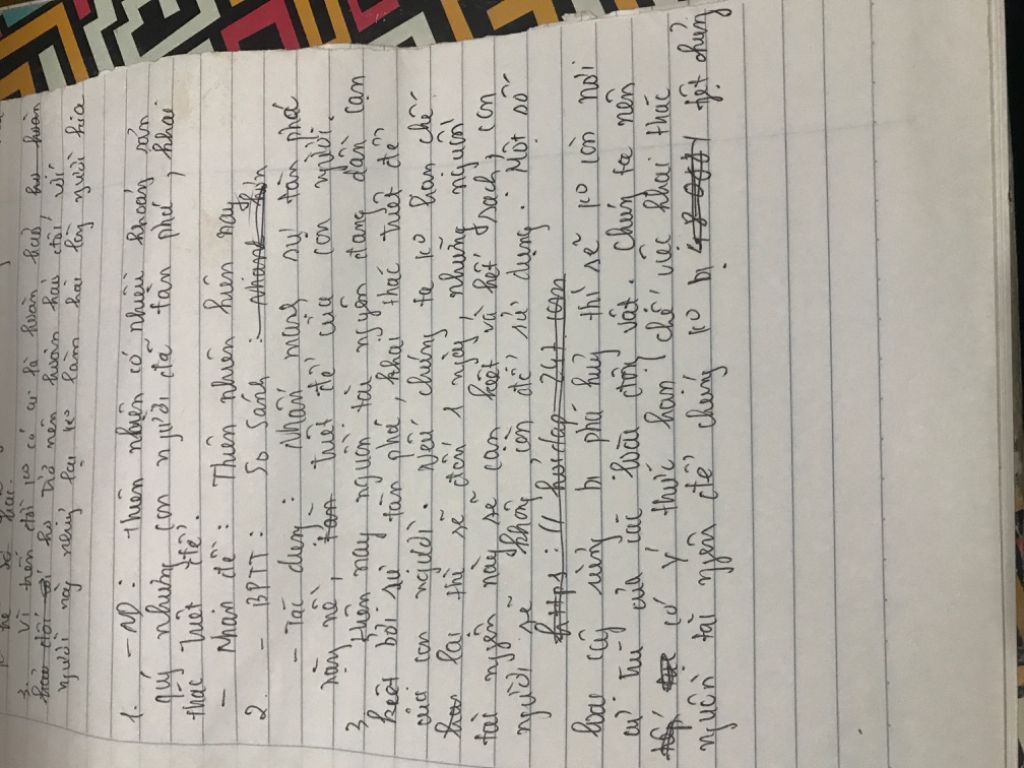 3. Vì trên đời ko có ai là hoàn hảo, họ hoàn
người này nhưng lại ko làm hài lòng người kia
1. - ND: thiên nhiên có nhiều khoáng sản
quý nhưng con người đã tàn phá, khai
thác triệt để.
- Nhan đề: Thiên nhiên hiện nay
2. - BPTT: So sánh:
- Tác dụng: Nhấn mạnh sự tàn phá
nặng nề, triệt để của con người.
3. Hiện nay nguồn tài nguyên đang dần cạn
kiệt bởi sự tàn phá, khai thác triệt để
của con người. Nếu chúng ta ko hạn chế
lại thì sẽ đến 1 ngày, những nguồn
tài nguyên này sẽ cạn kiệt và hết sạch, con
người sẽ không còn để sử dụng. Một số
https://hoidap247.com
loài cây rừng bị phá huỷ thì sẽ ko còn nơi
cư trú của các loài động vật. Chúng ta nên
có ý thức hạn chế việc khai thác
nguồn tài nguyên để chúng ko bị tuyệt chủng